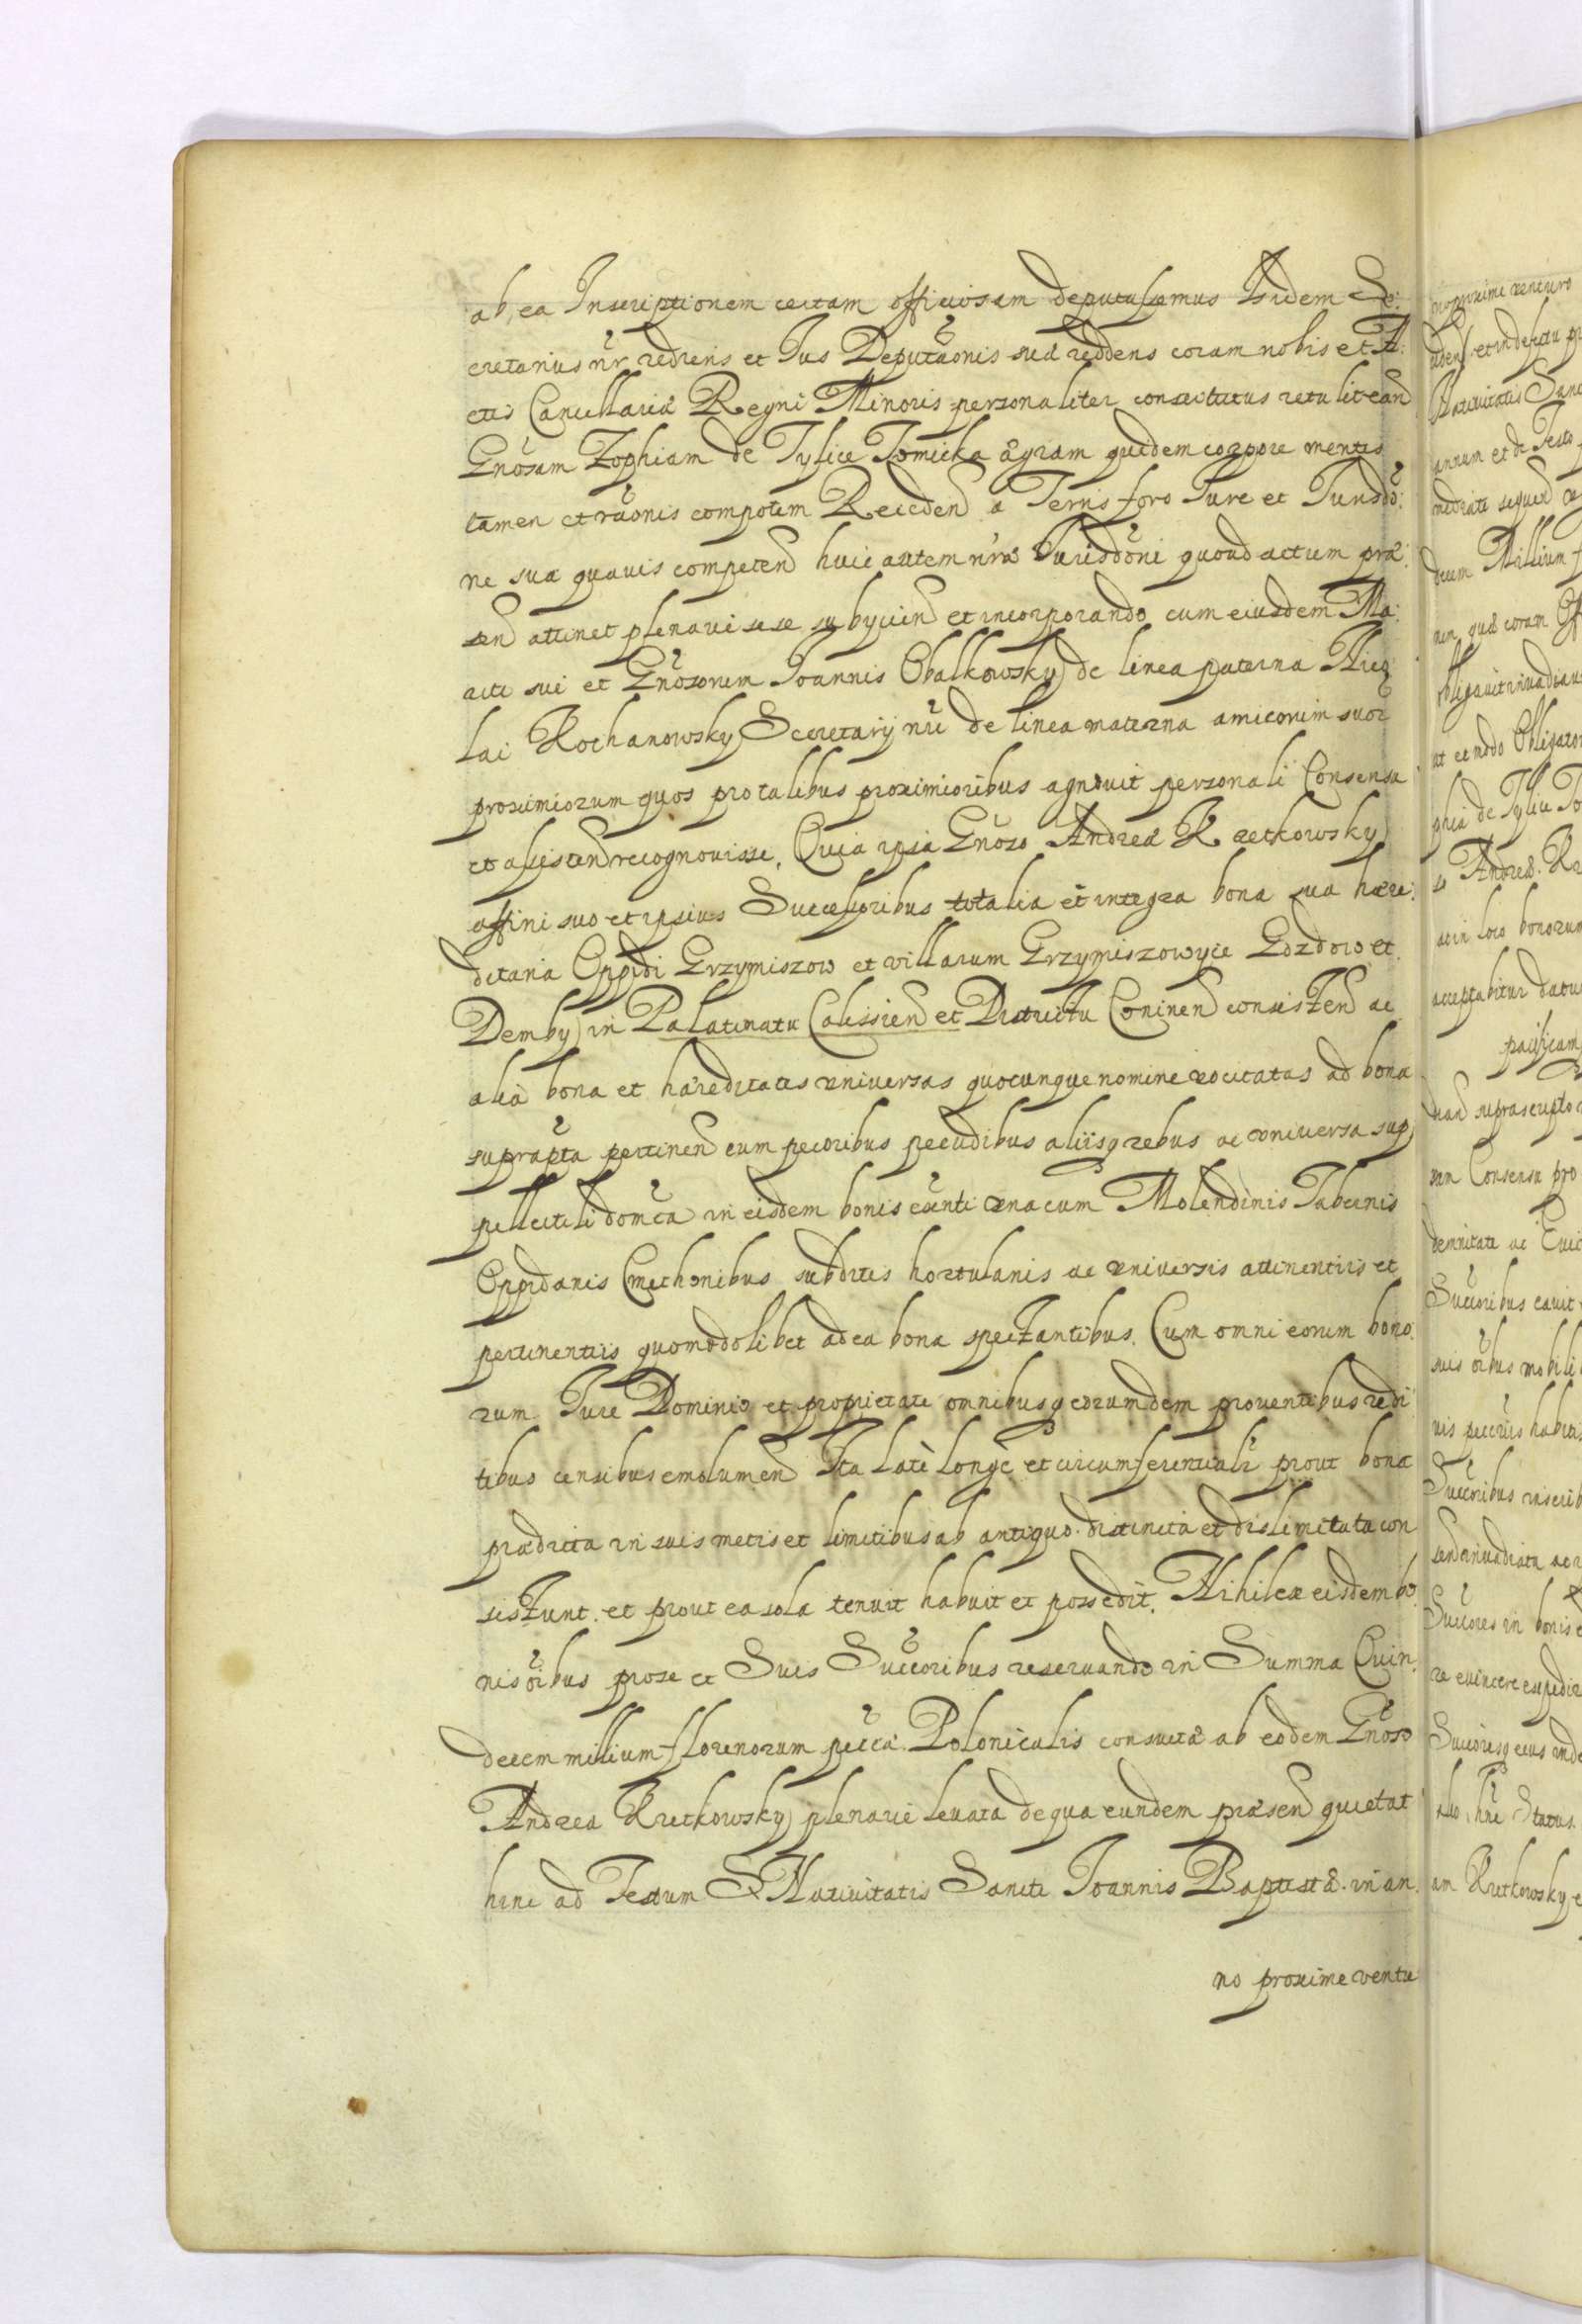 ab ea Inscriptionem certam officiosam deputassemus Isdem Se:
cretarius nr̃ rediens et Jus Deputãonis suæ reddens coram nobis et A:
ctis Cancellariæ Regni Minoris personaliter constitutus retulit eand
Gnõsam Zophiam de Tylice Tomicka ægram quidem corpore mentis
tamen et rãonis compotem Recedend a Terris foro Jure et Jurisdõ:
ne sua quavis competend huic autem nr̃æ Jurisdõni quoad actum præ:
sen attinet plenarie sese subyciend et incorporando cum eiusdem Ma:
riti sui et Gnõsorum Joannis Obalkowsky de linea paterna Nico
lai Kochanowsky Secretarij nr̃i de linea materna amicorum suor
proximiorum quos pro talibus proximioribus agnovit personali Consensu
et assistend recognovisse. Quia ipsa Gnõso Andreæ Kretkowsky
affini suo et ipsius Successoribus totalia et integra bona sua hære:
ditaria Oppidi Grzymiszow et villarum Grzymiszowyce Gozdow et
Demby in Palatinatu Calissien et Districtu Coninen consisten ac
alia bona et hæreditates universas quocunque nomine vocitatas ad bona
suprãpta pertinen cum pecoribus pecudibus aliisq rebus ac universa sup
pellectili domc̃a in eisdem bonis exñti una cum Molendinis Tabernis
Oppidanis Cmethonibus subditis hortulanis ac universis attinentiis et
pertinentiis quomodolibet ad ea bona spectantibus. Cum omni eorum bono:
rum Jure Dominio et proprietate omnibusq eorumdem proventibus redi
tibus censibus emolumen Ita latè longè et circumferentialr̃ prout bona
prædicta in suis metis et limitibus ab antiquo distincta et dislimitata con
sistunt et prout ea sola tenuit habuit et possedit. Nihil ex eisdem bo
nis õibus pro se et Suis Succõribus reservando in Summa Quin:
decem millium florenorum pecc̃æ Polonicalis consuetæ ab eodem Gnõso
Andrea Kretkowsky plenarie levata de qua eundem præsen quietat
hinc ad Festum S Nativitatis Sancti Joannis Baptistæ in an
no proxime ventu